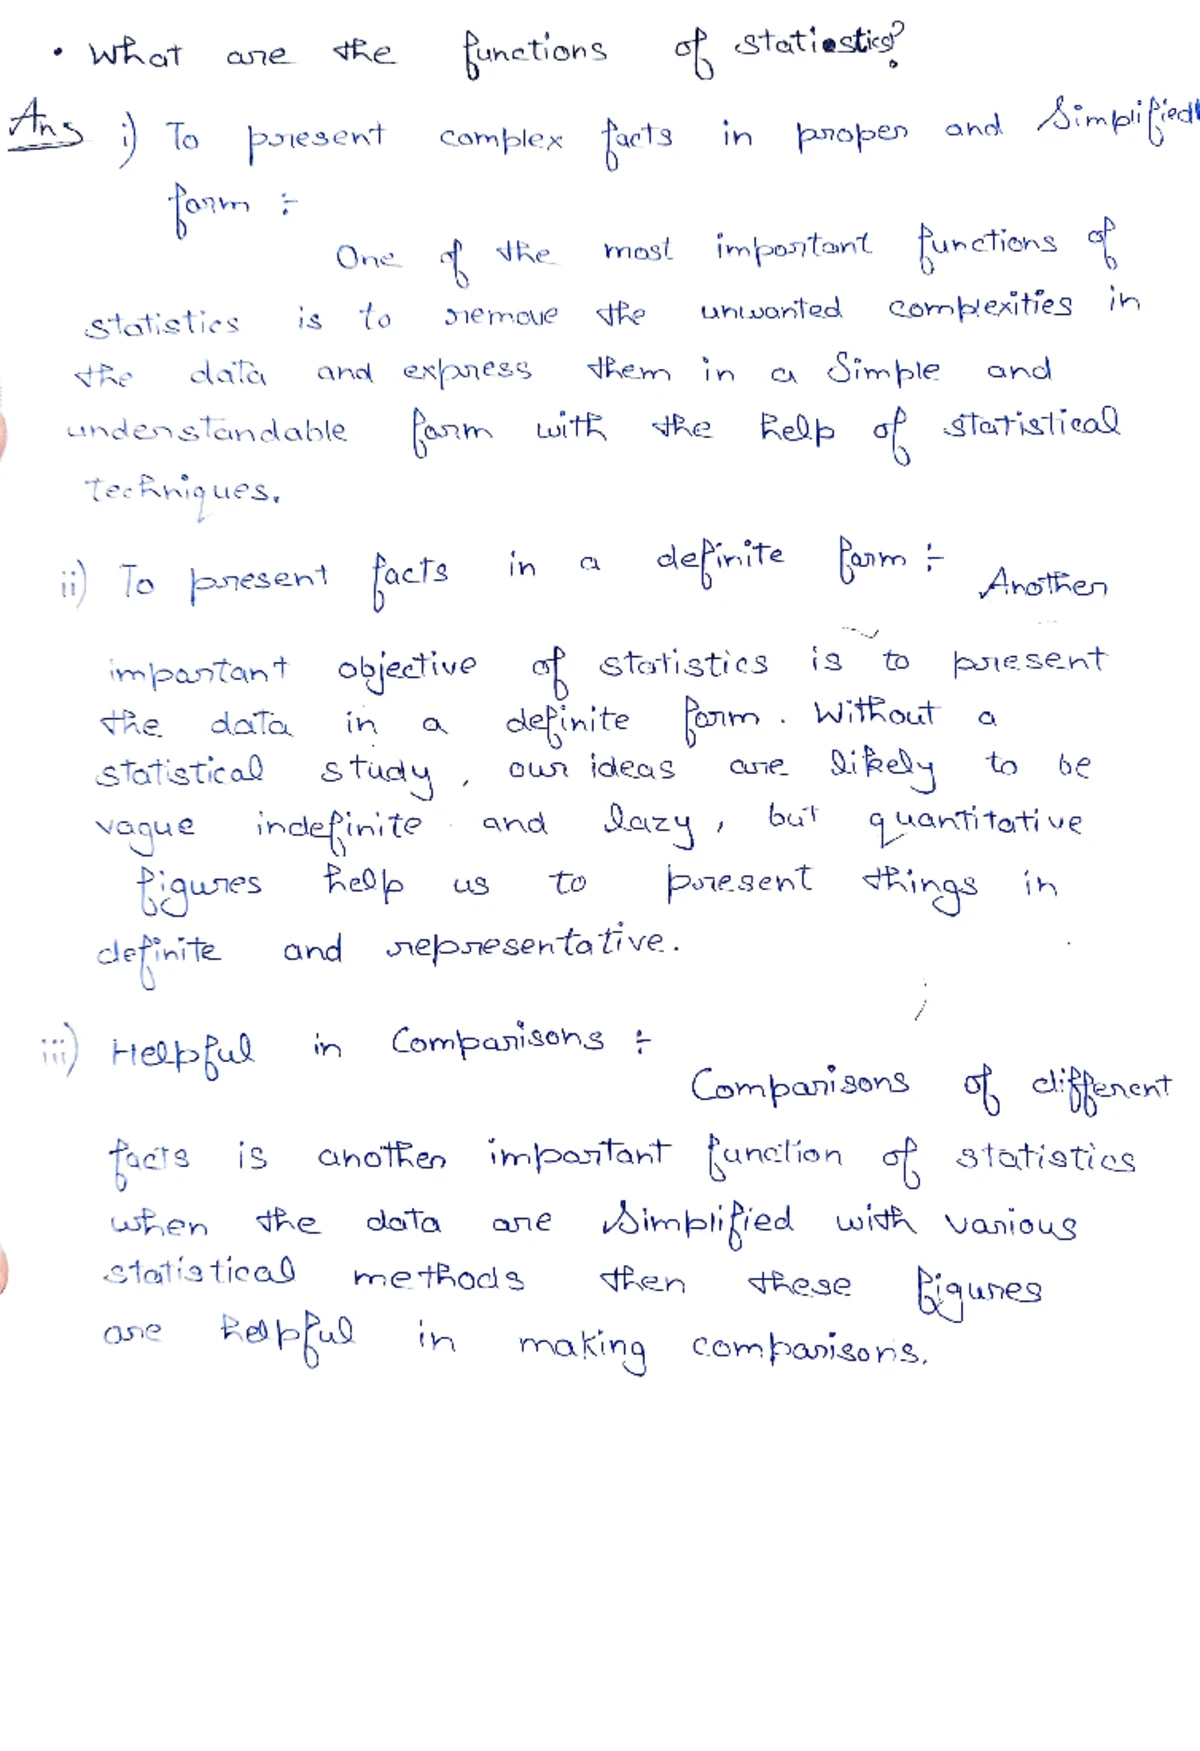 • What are the functions of statiestics?
Ans i) To present complex facts in proper and Simplified
form :-
One of the most important functions of
statistics is to remove the unwanted complexities in
the data and express them in a Simple and
understandable form with the help of statistical
techniques.
ii) To present facts in a definite form :- Another
important objective of statistics is to present
the data in a definite form. Without a
statistical study, our ideas are likely to be
vague indefinite and lazy, but quantitative
figures help us to present things in
definite and representative.
iii) Helpful in Comparisons :-
Comparisons of different
facts is another important function of statistics
when the data are Simplified with various
statistical methods then these figures
are helpful in making comparisons.